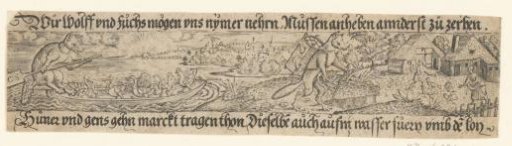 Wir Wolff vnd Füchs mögen vns nÿmer nehrn Müssen anheben annderst zü zerhen.
Hüner vnd gens gehn marckt tragen thon Dieselbe auch aufm wasser füern vmb dē lon